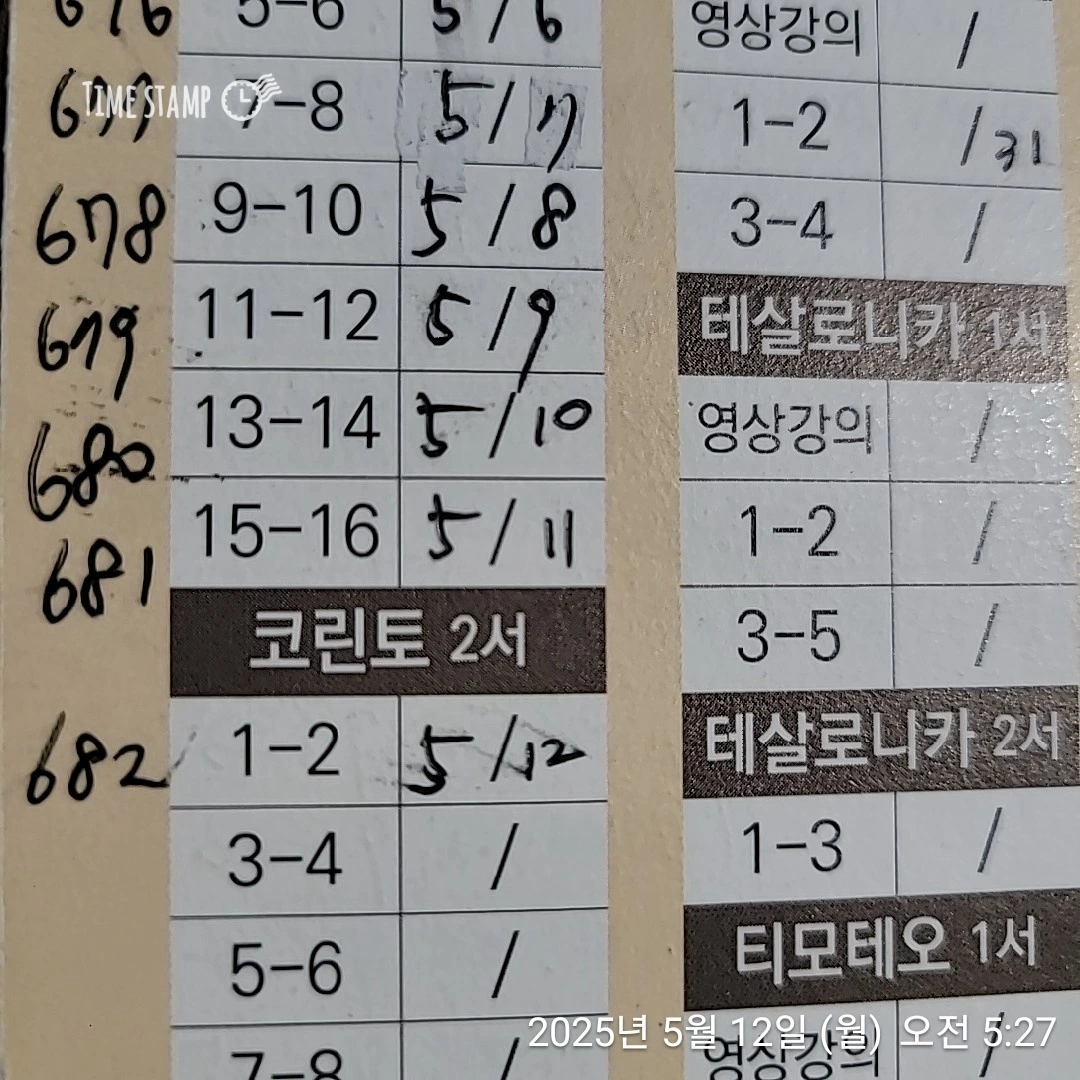 676 5-6 5/6
TIME STAMP
677 7-8 5/7
678 9-10 5/8
679 11-12 5/9
680 13-14 5/10
681 15-16 5/11
코린토 2서
682 1-2 5/12
3-4 /
5-6 /
7-8 /
영상강의 /
1-2 /31
3-4 /
테살로니카 1서
영상강의 /
1-2 /
3-5 /
테살로니카 2서
1-3 /
티모테오 1서
영상강의 /
2025년 5월 12일 (월) 오전 5:27